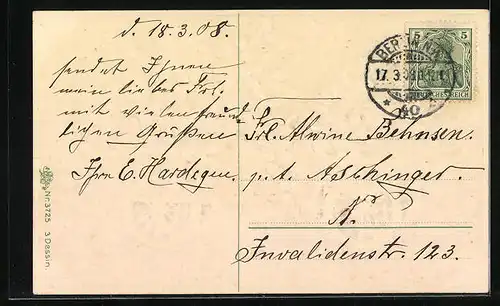 d. 18.3.08.
sendet Ihnen
mein liebes Frl.
mit vielen freund-
lichen Grüßen
Ihre E. Hardegen.
Frl. Alwine Behnsen.
p. A. Aschinger.
Invalidenstr. 123.
5 5
DEUTSCHES REICH
BERLIN N.
17.3.08
* 40
Nr. 3725 3 Dessin